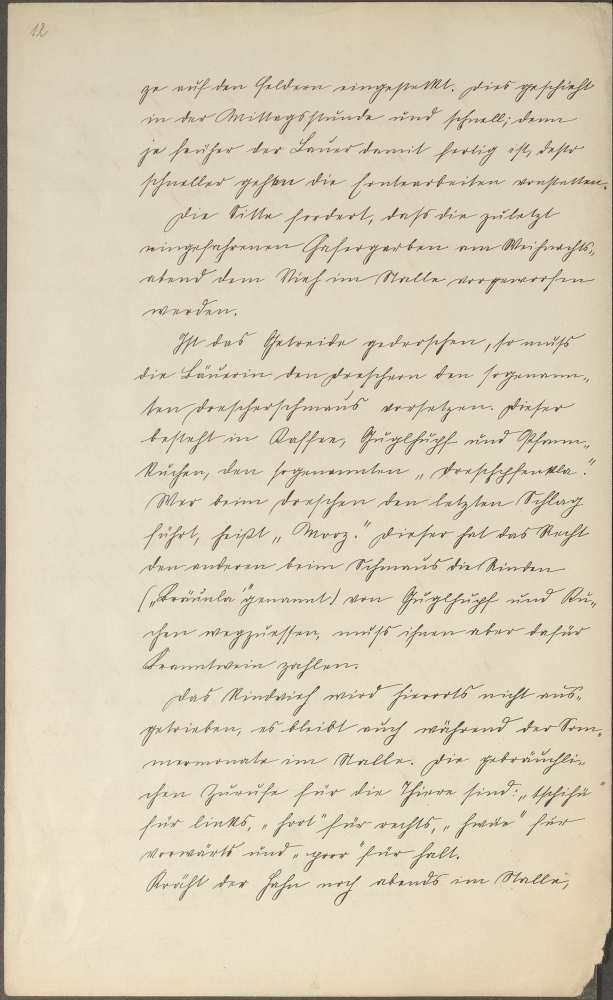 12
ze auf den Feldern eingestellt. Dies geschieht
in der Mittagsstunde und schnell; denn
je früher der Bauer damit fertig ist, desto
schneller gehen die Erntearbeiten vonstatten.
Die Sitte fordert, dass die zuletzt
eingefahrenen Hafergarben am Weihnachts„
abend dem Vieh im Stalle vorgeworfen
werden.
Ist das Getreide gedroschen, so muss
die Bäuerin den Dreschern den sogenann„
ten Drescherschmaus vorsetzen. Dieser
besteht in Kaffee, Guglhupf und Pfann„
kuchen, den sogenannten „Dreschpfenkla“.
Wer beim Dreschen den letzten Schlag
führt, heißt „Morz.“ Dieser hat das Recht
den anderen beim Schmaus die Rinden
(„Kräunla“ genannt) von Guglhupf und Ku„
chen wegzuessen, muss ihnen aber dafür
Branntwein zahlen.
Das Rindvieh wird hierorts nicht aus„
getrieben, es bleibt auch während der Som„
mermonate im Stalle. Die gebräuchli„
chen Zurufe für die Thiere sind: „tschihü“
für links, „hott“ für rechts, „hwäe“ für
vorwärts und „prrr“ für halt.
Kräht der Hahn noch abends im Stalle,